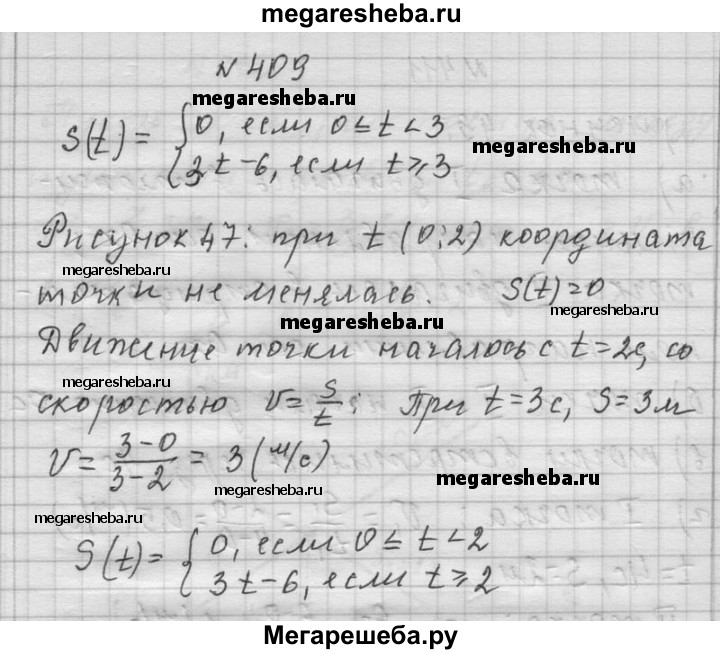 megaresheba.ru
N 409
megaresheba.ru
S(t) = {0, если 0 ≤ t < 3
{3t - 6, если t ⩾ 3
megaresheba.ru
Рисунок 47: при t (0;2) координата
megaresheba.ru
точки не менялась. S(t) = 0
megaresheba.ru
megaresheba.ru
Движение точки началось с t = 2с, со
megaresheba.ru
скоростью v = S/t; При t = 3с, S = 3м
V = (3-0)/(3-2) = 3 (м/с)
megaresheba.ru
megaresheba.ru
megaresheba.ru
S(t) = {0, если 0 ≤ t < 2
{3t - 6, если t ⩾ 2
Мегарешеба.ру